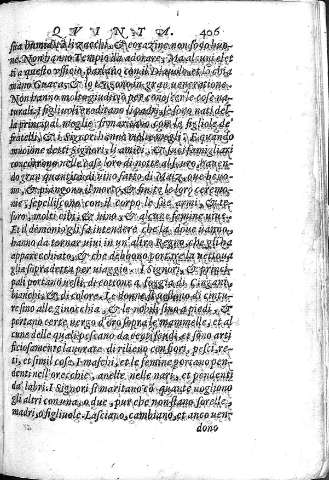 QVINTA. 406
ne. Non hanno Tempio da adorare, Ma alcuni eletti
a questo ufficio, parlano con il Diavolo, et lo chia
mano Guaca, & lo tengono in gran veneratione.
Non hanno molto giuditio per conoscer le cose na
turali. I figliuoli ereditano li padri, se sono nati del
la principal moglie,
fratelli, & i Signori hanno molte mogli. E quando
muoiono detti Signori, li amici, & suoi famigliari
concorrono nelle case loro di notte al scuro, hauen
do gran quantità di vino fatto di Maiz, oue beuo
no, & piangono il morto, & finite le loro ceremo
nie, sepelliscono con il corpo le sue armi, & te-
soro, molti cibi, & vino, & alcune femine viue.
Et il demonio gli fa intendere che la doue hanno
hanno da tornar viui in un' altro Regno che gli ha
apparecchiato, & che debbono portare la vettoua
glia sopradetta per viaggio. I Signori, & princi-
pali portano vesti, di cottone a foggia di Ciagani
bianchi, & di colore. Le donne si vestono di cintu
re sino alle ginocchia, & le nobili sino a piedi, &
portano certe verge d'oro sopra le mammelle, et al
cune delle quali pesano da scudi, et sono arti
ficiosamente lauorate di rilieuo con fiori, pesci,
ti, et simil cose. I maschi, et le femine portano pen
denti nell'orecchie, anelle nelle nari, et pendenti
da' labri. I Signori si maritano cō quante vogliono
gli altri con una, o due, pur che non siano sorelle,
madri, o figliuole. Lasciano, cambiano, et anco ven
dono